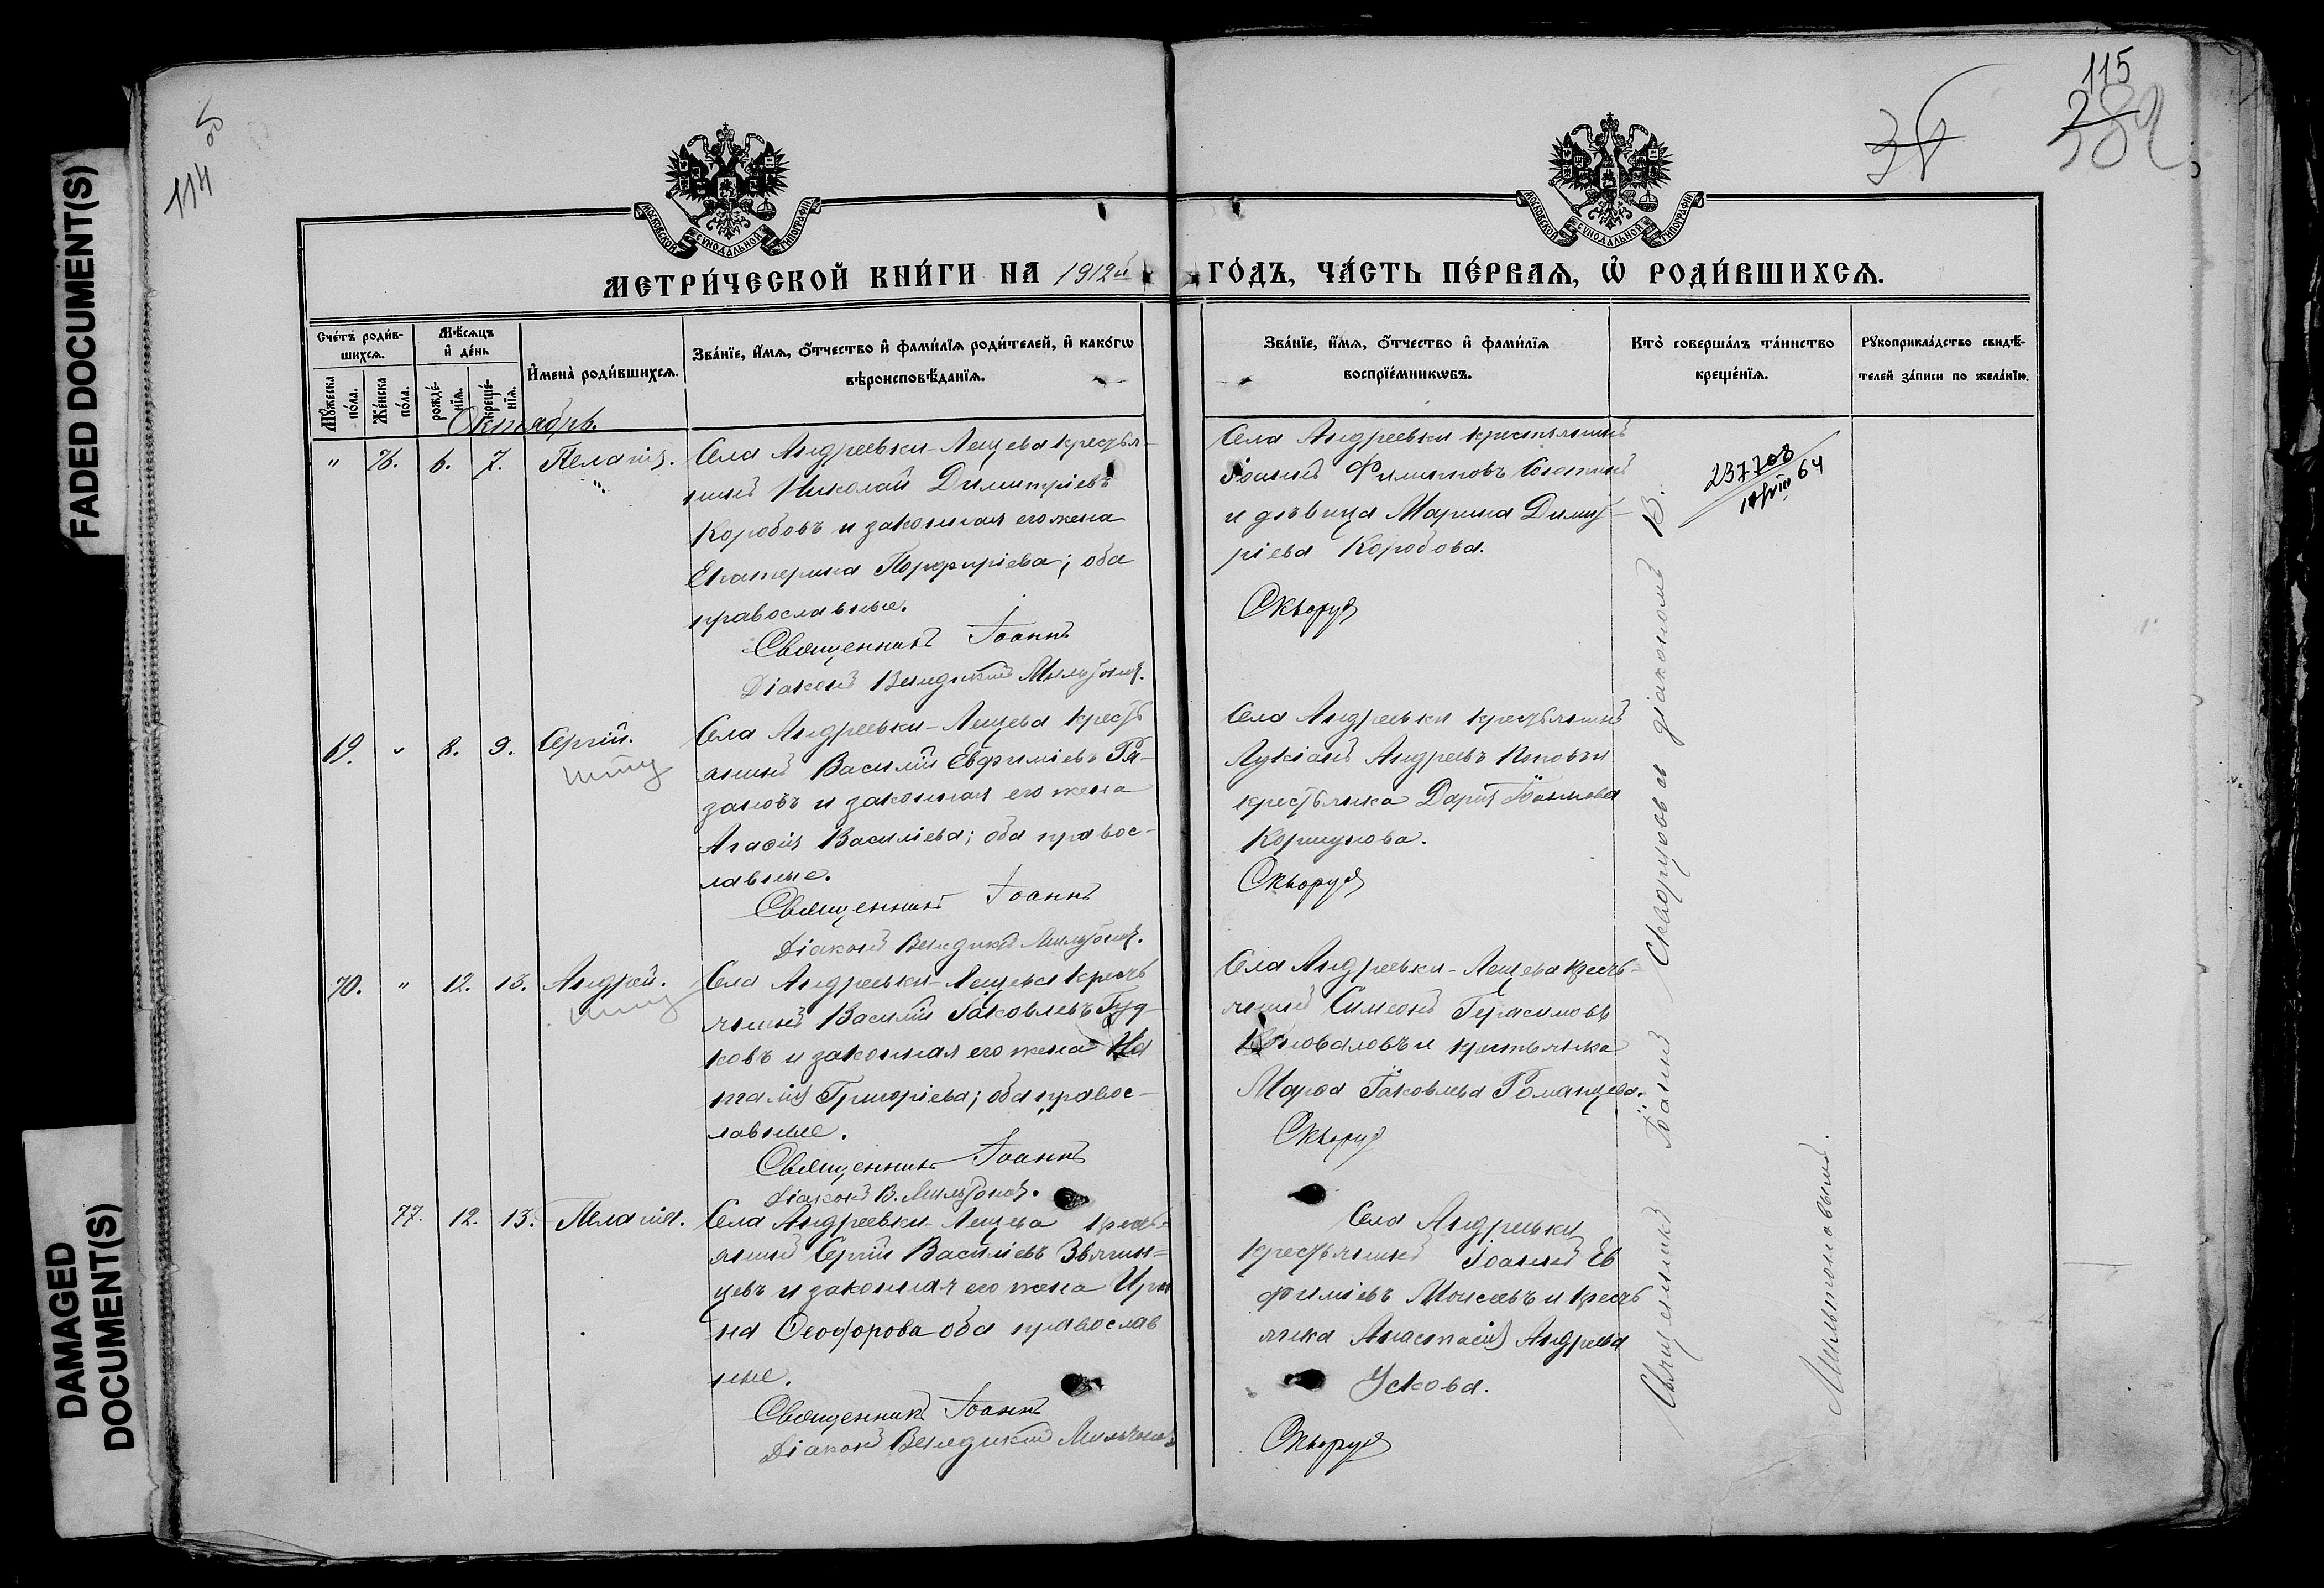 FADED DOCUMENT(S)
DAMAGED
DOCUMENT(S)
114
115
МОСКОВСКОЙ СѴНОДАЛЬНОЙ ТИПОГРАФІИ
МОСКОВСКОЙ СѴНОДАЛЬНОЙ ТИПОГРАФІИ
МЕТРИ́ЧЕСКОЙ КНИ́ГИ НА 1912й
ГО́ДЪ, ЧА́СТЬ ПЕ́РВАѦ, Ѽ РОДИ́ВШИХСѦ.
Сче́тъ роди́в-
шихсѧ.
Мꙋ́жеска
по́ла.
Же́нска
по́ла.
Мѣ́сѧцъ
и҆ де́нь
рожде́-
нїѧ.
креще́-
нїѧ.
И҆мена̀ роди́вшихсѧ.
Зва́нїе, и҆́мѧ, ѻ҆́тчество и҆ фами́лїѧ роди́телей, и҆ како́гѡ
вѣроисповѣ́данїѧ.
Зва́нїе, и҆́мѧ, ѻ҆́тчество и҆ фами́лїѧ
воспрїе́мникѡвъ.
Кто̀ соверша́лъ та́инство
креще́нїѧ.
Рꙋкоприкла́дство свидѣ́-
телей за́писи по жела́нїю.
Октябрь.
" 76. 6. 7. Пелагія.
Села Андреевки-Лещева крестья-
нинъ Николай Димитріевъ
Коробовъ и законная его жена
Екатерина Порфиріева; оба
православные.
Священникъ Іоаннъ
Діаконъ Венедиктъ Мильтонов.
Села Андреевки крестьянинъ
Іоаннъ Филиповъ
и дѣвица Марина Димит-
ріева Коробова.
Скворцов
237708
64
69. " 8. 9. Сергій.
Села Андреевки-Лещева кресть
янинъ Василій Евфиміевъ Ря-
зановъ и законная его жена
Агаѳія Васильева; оба правос-
лавные.
Священникъ Іоаннъ
Діаконъ Венедиктъ Мильтонов.
Села Андреевки крестьянинъ
Лукіанъ Андреевъ
крестьянка Дарія Іоаннова
Коршунова.
Скворцов
70. " 12. 13. Андрей.
Села Андреевки-Лещева кресть
янинъ Василій Іаковлевъ Гуд-
ковъ и законная его жена На
талія Григоріева; оба правос-
лавные.
Священникъ Іоаннъ
Діаконъ В. Мильтонов.
Села Андреевки-Лещева кресть-
янинъ Симеонъ Герасимовъ
Коноваловъ и крестьянка
Марѳа Іаковлева Романцева.
Скворцов
77. 12. 13. Пелагія.
Села Андреевки-Лещева кресть-
янинъ Сергій Васильевъ Звягин-
цевъ и законная его жена Ири
на Ѳеодорова оба православ
ные.
Священникъ Іоаннъ
Діаконъ Венедиктъ Мильтонов
Села Андреевки
крестьянинъ Іоаннъ Ев
фиміевъ Моисеевъ и кресть
янка Анастасія Андреева
Ускова.
Скворцов
Священникъ Іоаннъ Скворцовъ съ діакономъ В.
Мильтоновымъ.